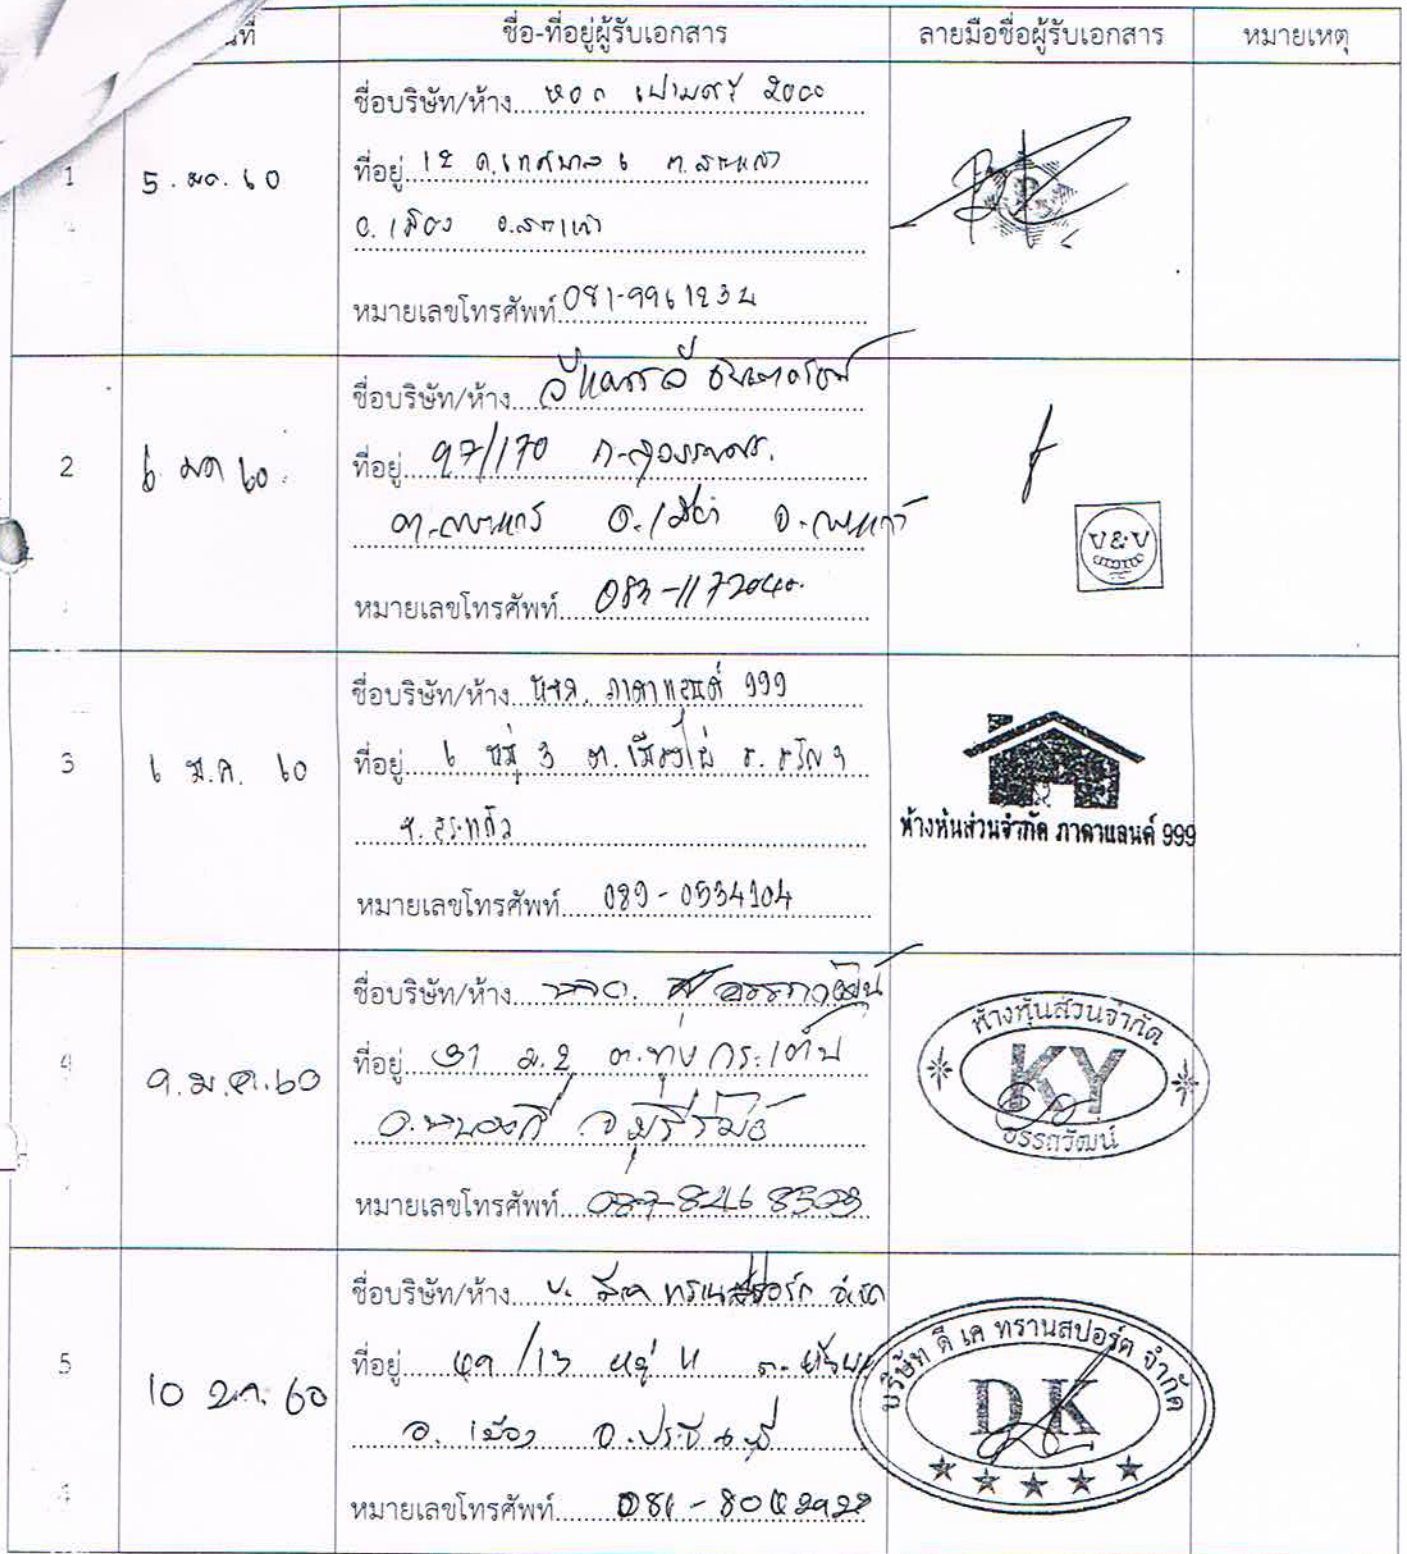 ที่ ชื่อ-ที่อยู่ผู้รับเอกสาร ลายมือชื่อผู้รับเอกสาร หมายเหตุ
1 5. มค. 60
ชื่อบริษัท/ห้าง 2000
ที่อยู่ 12 ถ.เทศบาล 6 ต.สระแก้ว
อ.เมือง จ.สระแก้ว
หมายเลขโทรศัพท์ 081-9961232
2 6 มค 60.
ชื่อบริษัท/ห้าง
ที่อยู่ 97/170 ถ.สุวรรณศร.
ต.สระแก้ว อ.เมือง จ.สระแก้ว
หมายเลขโทรศัพท์
V&V
3 6 ม.ค. 60
ชื่อบริษัท/ห้าง หจก. ภาดาแลนด์ 999
ที่อยู่ 6 หมู่ 3 ต.เมืองไผ่ อ.อรัญฯ
จ.สระแก้ว
หมายเลขโทรศัพท์ 089-0534104
ห้างหุ้นส่วนจำกัด ภาดาแลนด์ 999
4 9.ม.ค.60
ชื่อบริษัท/ห้าง หจก. อรรถวัฒน์
ที่อยู่ 31 ม.2 ต.ทุ่งกระเต็น
อ.หนองกี่ จ.บุรีรัมย์
หมายเลขโทรศัพท์ 087-8246
ห้างหุ้นส่วนจำกัด
KY
อรรถวัฒน์
5 10 มค. 60
ชื่อบริษัท/ห้าง บ. ดีเค ทรานสปอร์ต จำกัด
ที่อยู่ /13 หมู่ 11
อ. เมือง จ.ปราจีนบุรี
หมายเลขโทรศัพท์
บริษัท ดี เค ทรานสปอร์ต จำกัด
DK